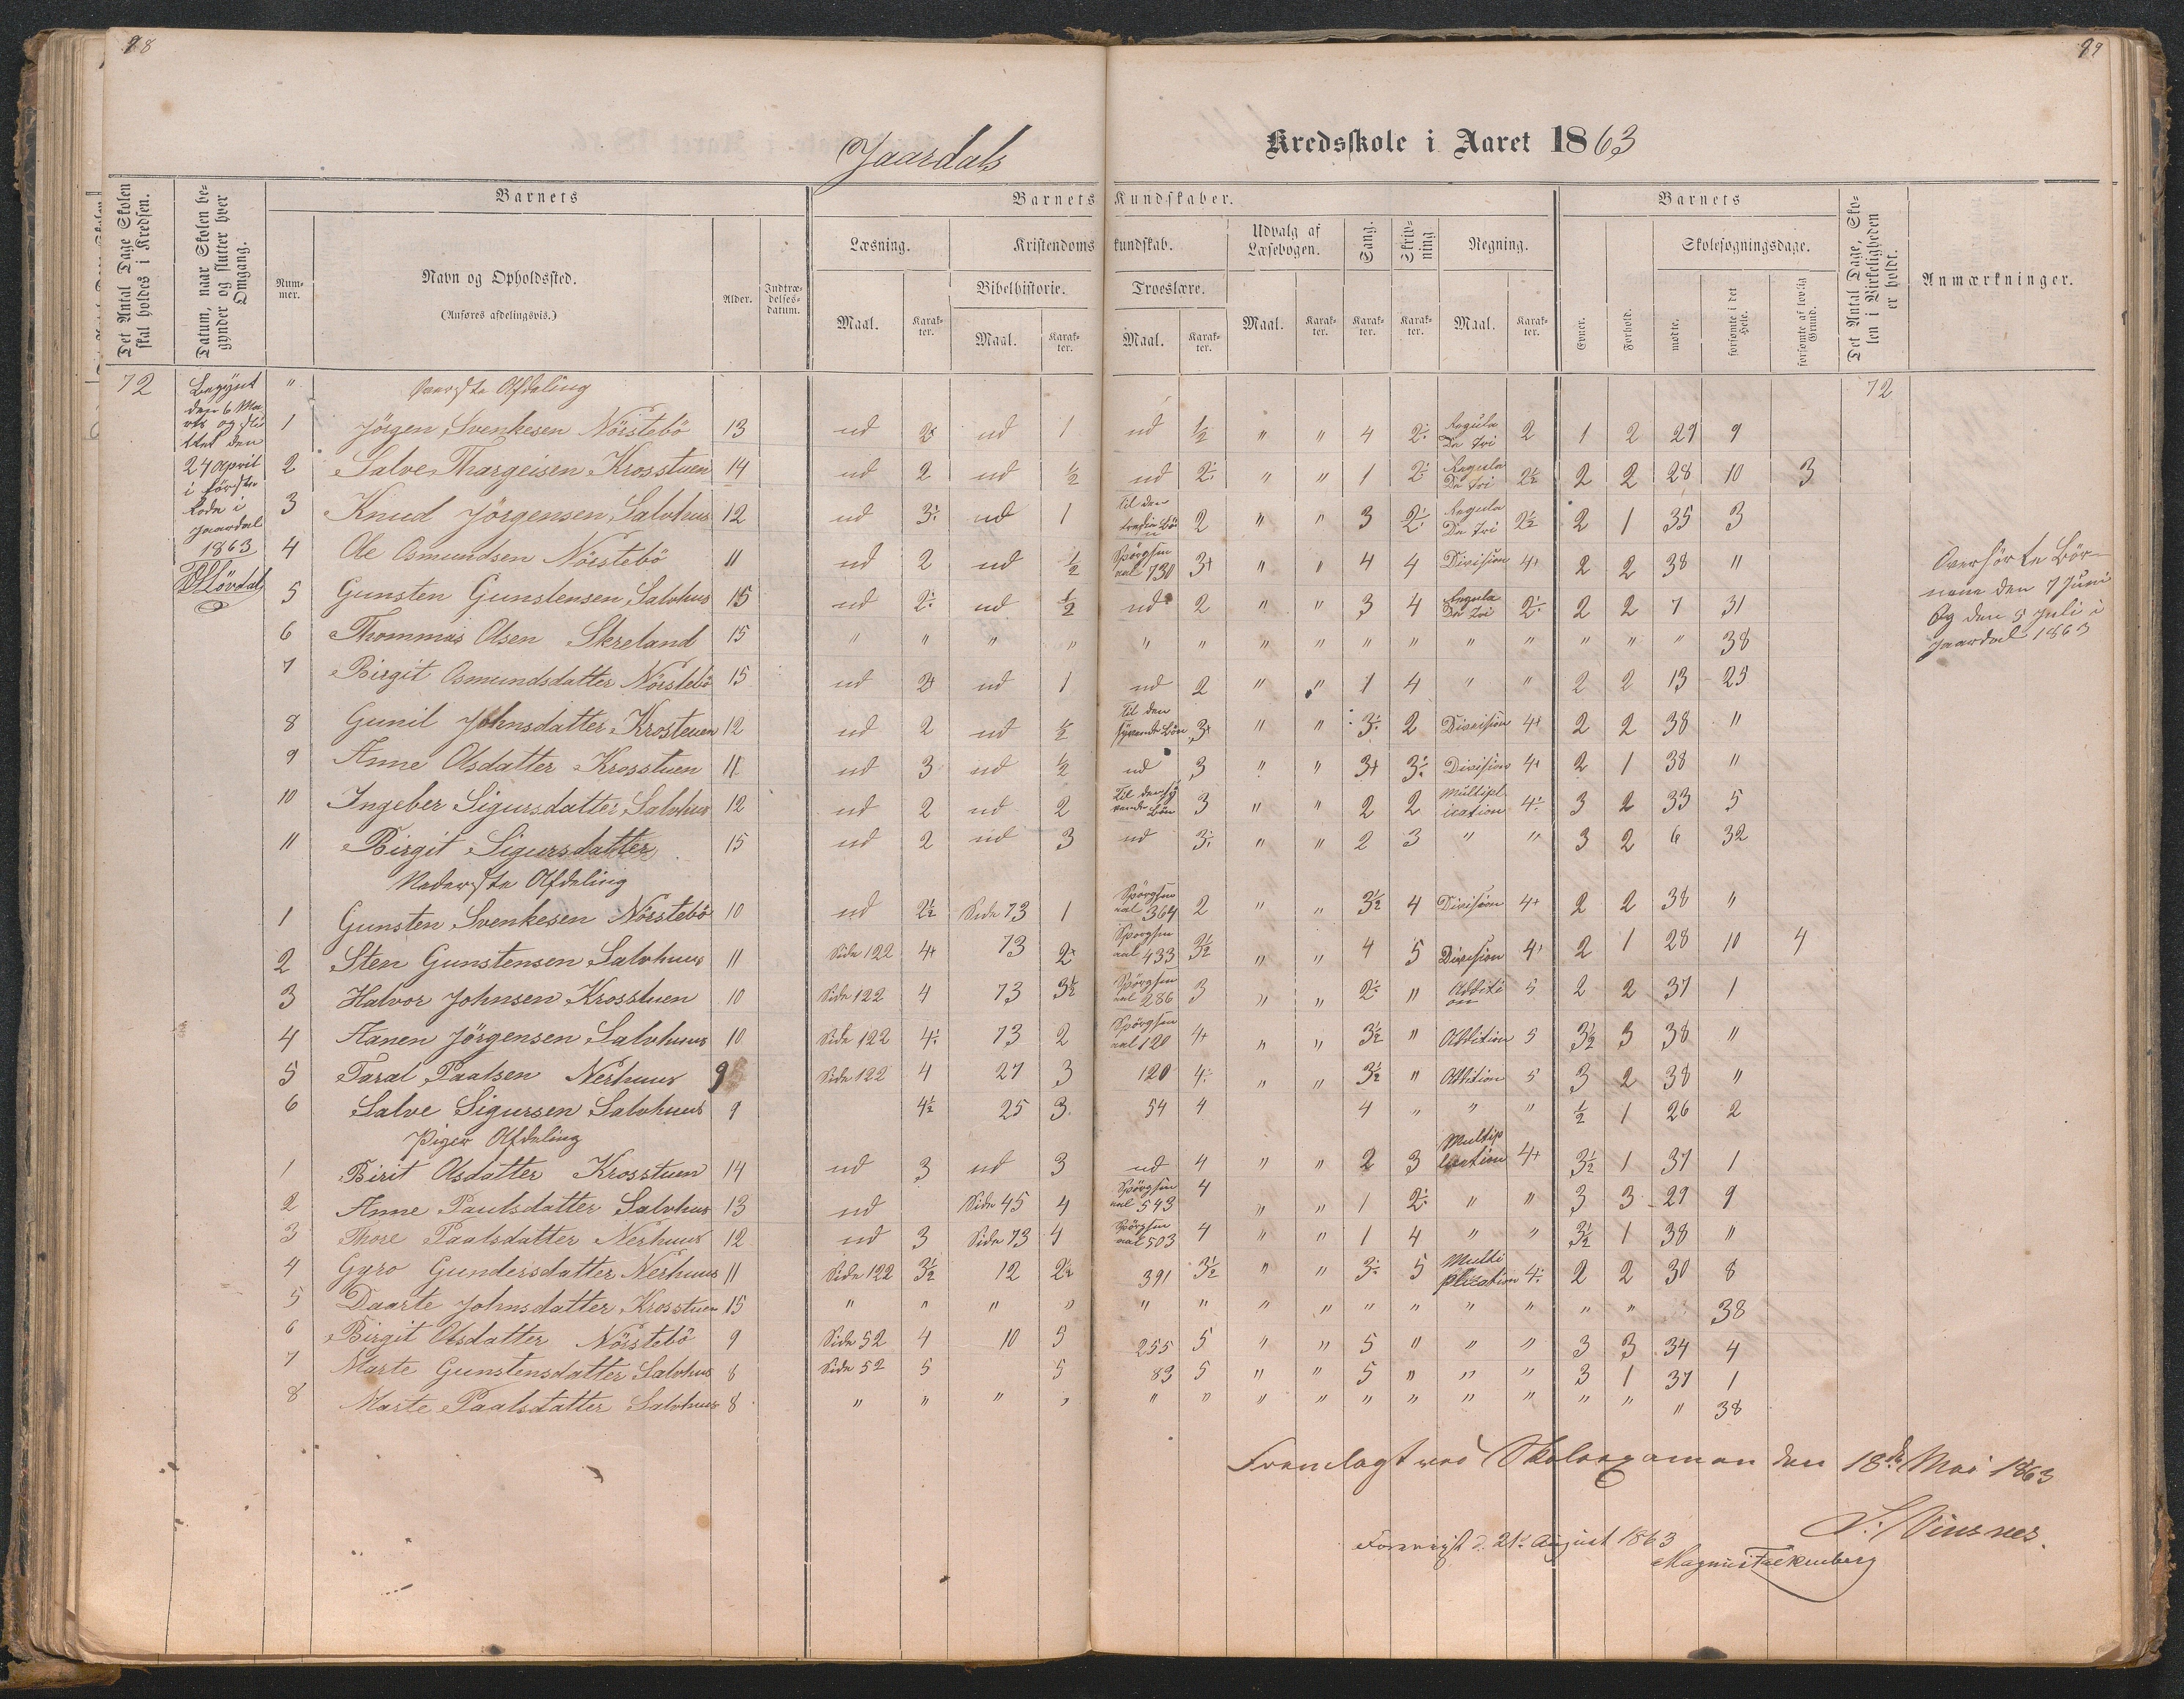 98
99
Jaardals Kredsskole i Aaret 1863
Det Antal Dage Skolen skal holdes i Kredsen.
Datum, naar Skolen begynder og slutter hver Omgang.
Barnets
Nummer.
Navn og Opholdssted.
(Anføres afdelingsvis.)
Alder.
Indtrædelsesdatum.
Barnets Kundskaber.
Læsning.
Maal.
Karakter.
Kristendomskundskab.
Bibelhistorie.
Maal.
Karakter.
Troeslære.
Maal.
Karakter.
Udvalg af Læsebogen.
Maal.
Karakter.
Sang.
Karakter.
Skrivning.
Karakter.
Regning.
Maal.
Karakter.
Barnets
Evner.
Forhold.
Skolesøgningsdage.
mødte.
forsømte i det Hele.
forsømte af lovlig Grund.
Det Antal Dage, Skolen i Virkeligheden er holdt.
Anmærkninger.
72
Begynt
den 6 Ma
rts og slu
ttet den
24 April
i første
Rode i
Jaardal
1863
Løvdal
" Øverste Afdeling 72
1 Jörgen Svenkesen Nörstebö 13 ud 2+ ud 1 ud ½ " " 4 2÷ Regula De Tri 2 1 2 29 9
2 Salve Thargeisen Krosstuen 14 ud 2 ud ½ ud 2÷ " " 1 2÷ Regula De Tri 2½ 2 2 28 10 3
3 Knud Jörgensen Salvhus 12 ud 3÷ ud 1 Til den tredie Bön 2 " " 3 2÷ Regula De Tri 2½ 2 1 35 3
4 Ole Osmundsen Nörstebö 11 ud 2 ud ½ Spörgsmaal 730 3+ " " 4 4 Division 4+ 2 2 38 "
5 Gunsten Gunstensen Salvhus 15 ud 2÷ ud ½ ud 2 " " 3 4 Regula De Tri 2÷ 2 2 7 31
6 Thommas Olsen Skreland 15 " " " " " " " " " " " " " " " 38
7 Birgit Osmundsdatter Nörstebö 15 ud 2+ ud 1 ud 2 " " 1 4 " " 2 2 13 25
8 Gunil Johnsdatter Krostuen 12 ud 2 ud ½ Til den syvende Bön 3+ " " 3÷ 2 Division 4+ 2 2 38 "
9 Anne Olsdatter Krosstuen 11 ud 3 ud ½ ud 3 " " 3+ 3÷ Division 4+ 2 1 38 "
10 Ingeber Sigursdatter Salvhus 12 ud 2 ud 2 Til den syvende Bön 3 " " 2 2 Multiplication 4÷ 3 2 33 5
11 Birgit Sigursdatter 15 ud 2 ud 3 ud 3÷ " " 2 3 " " 3 2 6 32
Nederste Afdeling
1 Gunsten Svenkesen Nörstebö 10 ud 2½ Side 73 1 Spörgsmaal 364 2 " " 3½ 4 Division 4+ 2 2 38 "
2 Sten Gunstensen Salvhuus 11 Side 122 4+ 73 2+ Spörgsmaal 433 3½ " " 4 5 Division 4+ 2 1 28 10 4
3 Halvor Johnsen Krosstuen 10 Side 122 4 73 3½ Spörgsmaal 286 3 " " 2÷ " Addition 5 2 2 37 1
4 Aanen Jörgensen Salvhuus 10 Side 122 4÷ 73 2 Spörgsmaal 120 4+ " " 3½ " Addition 5 3½ 3 38 "
5 Taral Paalsen Nerhuus 9 Side 122 4 27 3 120 4÷ " " 3½ " Addition 5 3 2 38 "
6 Salve Sigursen Salvhuus 9 4½ 25 3 54 4 4 " " " ½ 1 26 2
Piger Afdeling
1 Birit Olsdatter Krosstuen 14 ud 3 ud 3 ud 4 " " 2 3 Multiplication 4+ 3½ 1 37 1
2 Anne Paulsdatter Salvhus 13 ud Side 45 4 Spörgsmaal 543 4 " " 1 2÷ " " 3 3 29 9
3 Thore Paalsdatter Nerhuus 12 ud 3 Side 73 4 Spörgsmaal 503 4 " " 1 4 " " 3½ 1 38 "
4 Gyro Gundersdatter Nerhuus 11 Side 122 3½ 12 2½ 391 3½ " " 3÷ 5 Multiplication 4÷ 2 2 30 8
5 Daarte Johnsdatter Krosstuen 15 " " " " " " " " " " " " " " 38
6 Birgit Olsdatter Nörstebö 9 Side 52 4 10 5 255 5 " " 5 " " " 3 3 34 4
7 Marte Gunstensdatter Salvhus 8 Side 52 5 5 83 5 " " 5 " " " 3 1 37 1
8 Marte Paalsdatter Salvhus 8 " " " " " " " " " " " " " " " 38
Overhörte Bör-
nene den 7 Juni
Og den 5 Juli i
Jaardal 1863
Fremlagt ved Skoleexamen den 18de Mai 1863
S. Vinsnes.
Foreviist d. 21de August 1863
Magnus Falkenberg